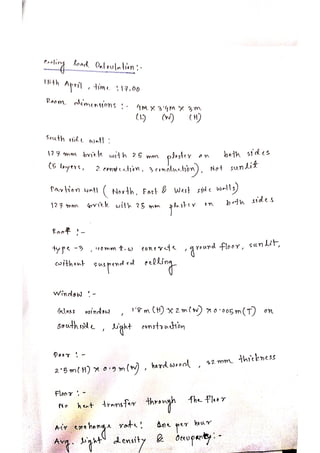 Cooling Load Calculation:-
15th April, time : 17.00
Room dimensions :- 4M X 3.4M X 3m
(L) (W) (H)
South side wall :
127 mm brick with 25 mm plaster on both sides
(5 layers, 2 convection, 3 conduction), Not sunlit
Partion wall ( North, East & West side walls)
127 mm brick with 25 mm plaster on both sides
Roof :-
type -3, concrete, ground floor, sunlit,
without suspended ceiling
Window :-
Glass window, 1.8 m (H) X 2 m (W) X 0.005m (T) on
southside, light construction
Door :-
2.5m(H) X 0.9m(W), hardwood, 32 mm thickness
Floor :-
No heat transfer through the floor
Air exchange rate: One per hour
Avg. light density & Occupancy:-